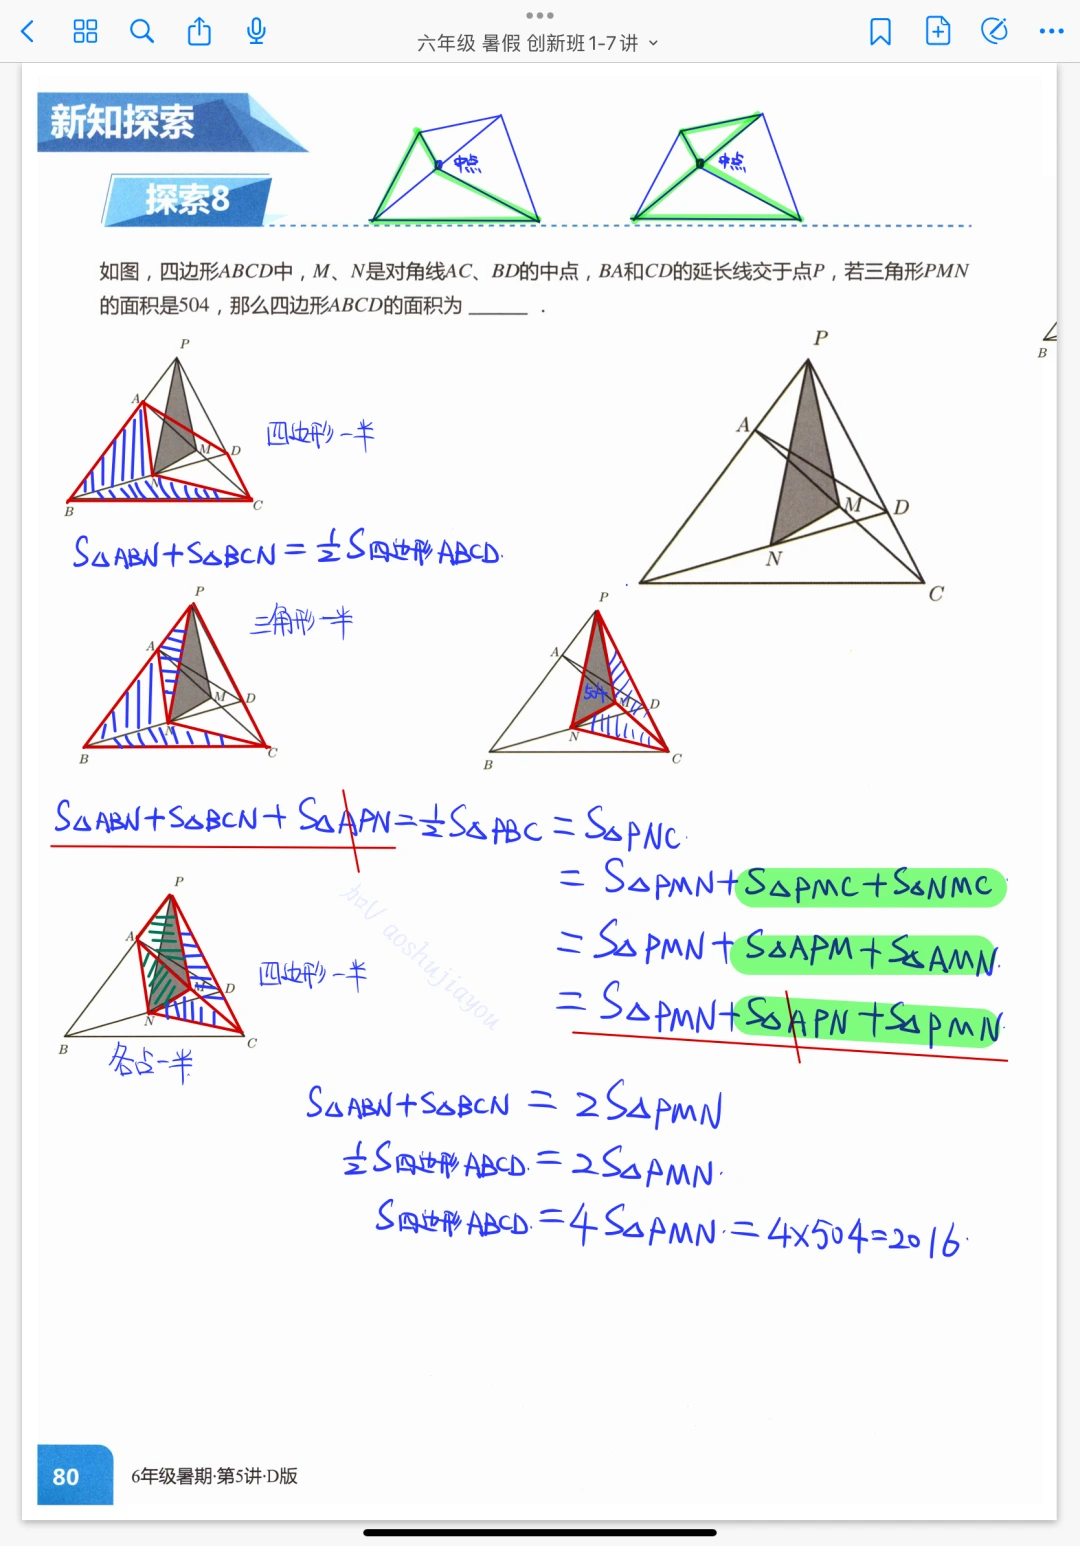 六年级 暑假 创新班1-7讲
新知探索
探索8
中点
中点
如图，四边形ABCD中，M、N是对角线AC、BD的中点，BA和CD的延长线交于点P，若三角形PMN
的面积是504，那么四边形ABCD的面积为 ______ ．
P
A
M
D
N
B
C
四边形一半
P
A
M
D
N
C
B
S△ABN+S△BCN=½S四边形ABCD.
P
A
M
D
N
B
C
三角形一半
P
A
504
M
D
N
B
C
S△ABN+S△BCN+S△APN=½S△PBC=S△PNC.
=S△PMN+S△PMC+S△NMC
=S△PMN+S△APM+S△AMN.
=S△PMN+S△APN+S△PMN
P
A
M
D
N
B
C
四边形一半
各占一半
hal aoshujiayou
S△ABN+S△BCN=2S△PMN
½S四边形ABCD.=2S△PMN.
S四边形ABCD.=4S△PMN.=4×504=2016.
80
6年级暑期·第5讲·D版
B